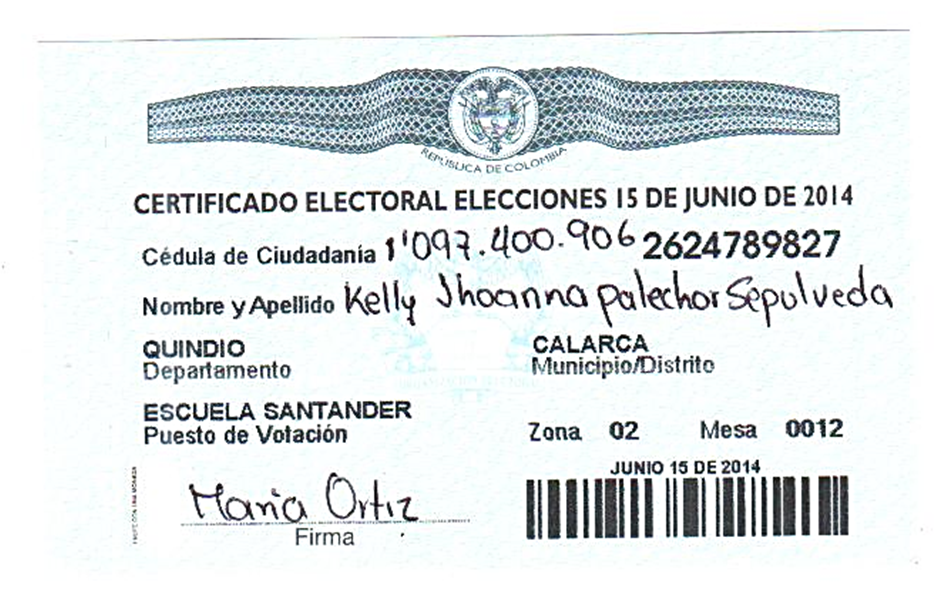 REPÚBLICA DE COLOMBIA
CERTIFICADO ELECTORAL ELECCIONES 15 DE JUNIO DE 2014
Cédula de Ciudadanía 1'097.400.906 2624789827
Nombre y Apellido Kelly Jhoanna Palechor Sepulveda
QUINDIO CALARCA
Departamento Municipio/Distrito
ESCUELA SANTANDER
Puesto de Votación Zona 02 Mesa 0012
JUNIO 15 DE 2014
Maria Ortiz
Firma